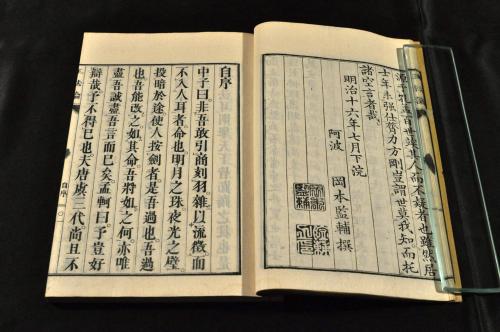 百世竢其人而不疑者也雖然居
士年未强仕膂力方剛豈謂世莫我知而托
諸空言者哉
明治十六年七月下浣
阿波 岡本監輔撰
自序
中子曰非吾敢引商刻羽雜以流徵而
不入人耳者命也明月之珠夜光之璧
投暗於途使人按劍者是吾過也吾過
也吾能改之如其命吾將如之何亦唯
盡吾誠盡吾言而已矣孟軻曰予豈好
辯哉予不得已也夫唐虞三代尚且不
自序